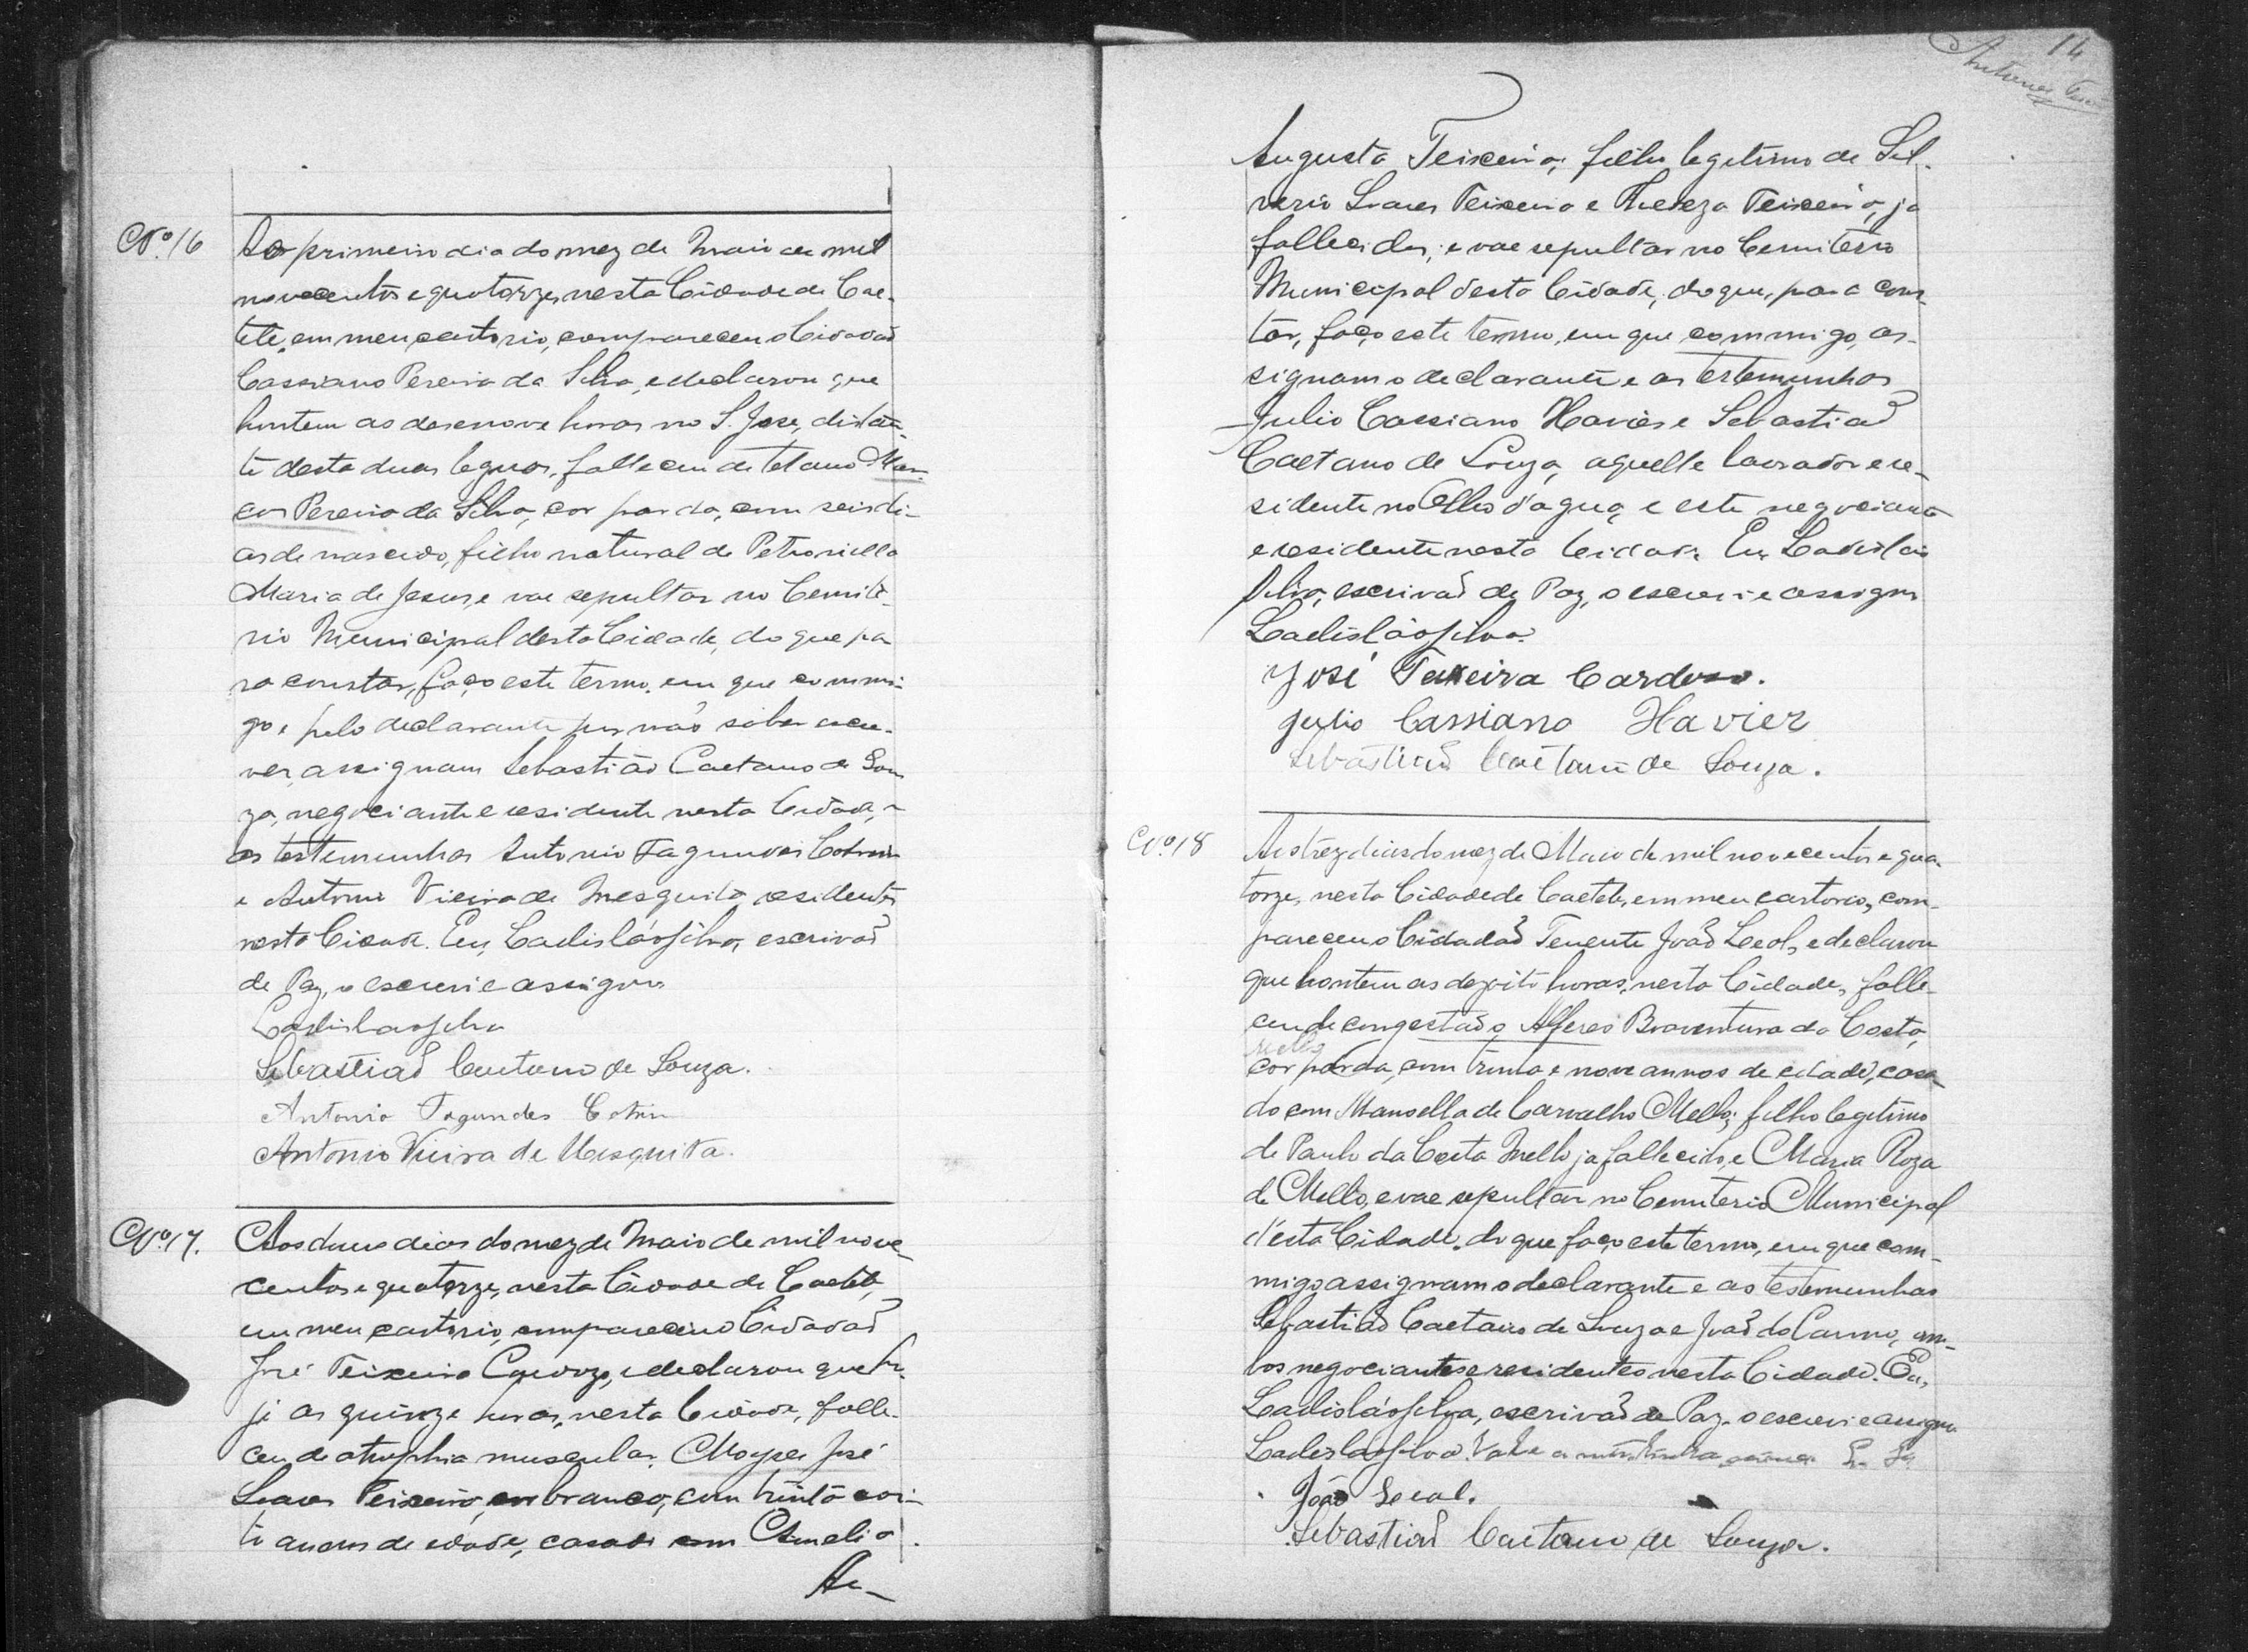 Nº.16
Ao primeiro dia do mez de Maio de mil
novecentos e quatorze, nesta Cidade de Cae-
tété, em meu cartorio, compareceu o Cidadaõ
Cassiano Pereira da Silva, e declarou que
hontem as desenove horas no S. Jose, distan-
te desta duas leguas, falleceu de tetano Mar-
cos Pereira da Silva, cor parda, com seis di-
as de nascido, filho natural de Petronilla
Maria de Jesus, e vae sepultar no Cemité-
rio Municipal desta Cidade, do que pa-
ra constar, faço este termo, em que commi-
go e pelo declarante por não saber escre-
ver, assignam Sebastião Caetano de Sou
za, negociante e residente nesta Cidade, e
as testemunhas Antonio Fagundes Cotrim
e Antonio Vieira de Mesquita residentes
nesta Cidade. Eu, Ladisláo Silva, escrivaõ
de Paz, o escrevi e assigno
Ladislao Silva
Sebastiaõ Caetano de Souza.
Antonio Fagundes Cotrim
Antonio Vieira de Mesquita.
Nº.17.
Aos dous dias do mez de Maio de mil nove-
centos e quatorze, nesta Cidade de Caeteté,
em meu cartorio, compareceu o Cidadaõ
José Teixeira Cardozo, e declarou que ho-
je as quinze horas, nesta Cidade, falle-
ceu de atrophia muscular, Moyses José
Soares Teixeira, cor branca, com trinta e oi-
to annos de edade, casado com Amelia
Au-
14
Augusta Teixeira, filho legitimo de Sil-
verio Soares Teixeira e Thereza Teixeira, ja
fallecidos, e vae sepultar no Cemiterio
Municipal desta Cidade, do que, para cons-
tar, faço este termo, em que commigo, as-
signam o declarante e as testemunhas
Julio Cassiano Xavier e Sebastiaõ
Caetano de Souza, aquelle lavrador e re-
sidente no Olho d'agua, e este negociante
e residente nesta Cidade. Eu, Ladisláo
Silva, escrivaõ de Paz, o escrevi e assigno
Ladisláo Silva.
José Teixeira Cardoso.
Julio Cassiano Xavier
Sebastiaõ Caetano de Souza.
Nº.18
Aos trez dias do mez de Maio de mil novecentos e qua-
torze, nesta Cidade de Caeteté, em meu cartorio, com-
pareceu o Cidadaõ Tenente Joaõ Leal, e declarou
que hontem as dezoito horas, nesta Cidade, falle-
ceu de congestaõ, Alferes Boaventura da Costa,
Mello
cor parda, com trinta e nove annos de edade, casa-
do com Manoella de Carvalho Mello, filho legitimo
de Paulo da Costa Mello ja fallecido, e Maria Roza
de Mello, e vae sepultar no Cemiterio Municipal
d'esta Cidade, do que faço este termo, em que com-
migo assignam o declarante e as testemunhas
Sebastiaõ Caetano de Souza e Joaõ do Carmo, am-
bos negociantes e residentes nesta Cidade. Eu,
Ladisláo Silva, escrivaõ de Paz, o escrevi e assigno
Ladisláo Silva. Vale a entrelinha
João Leal.
Sebastiaõ Caetano de Souza.